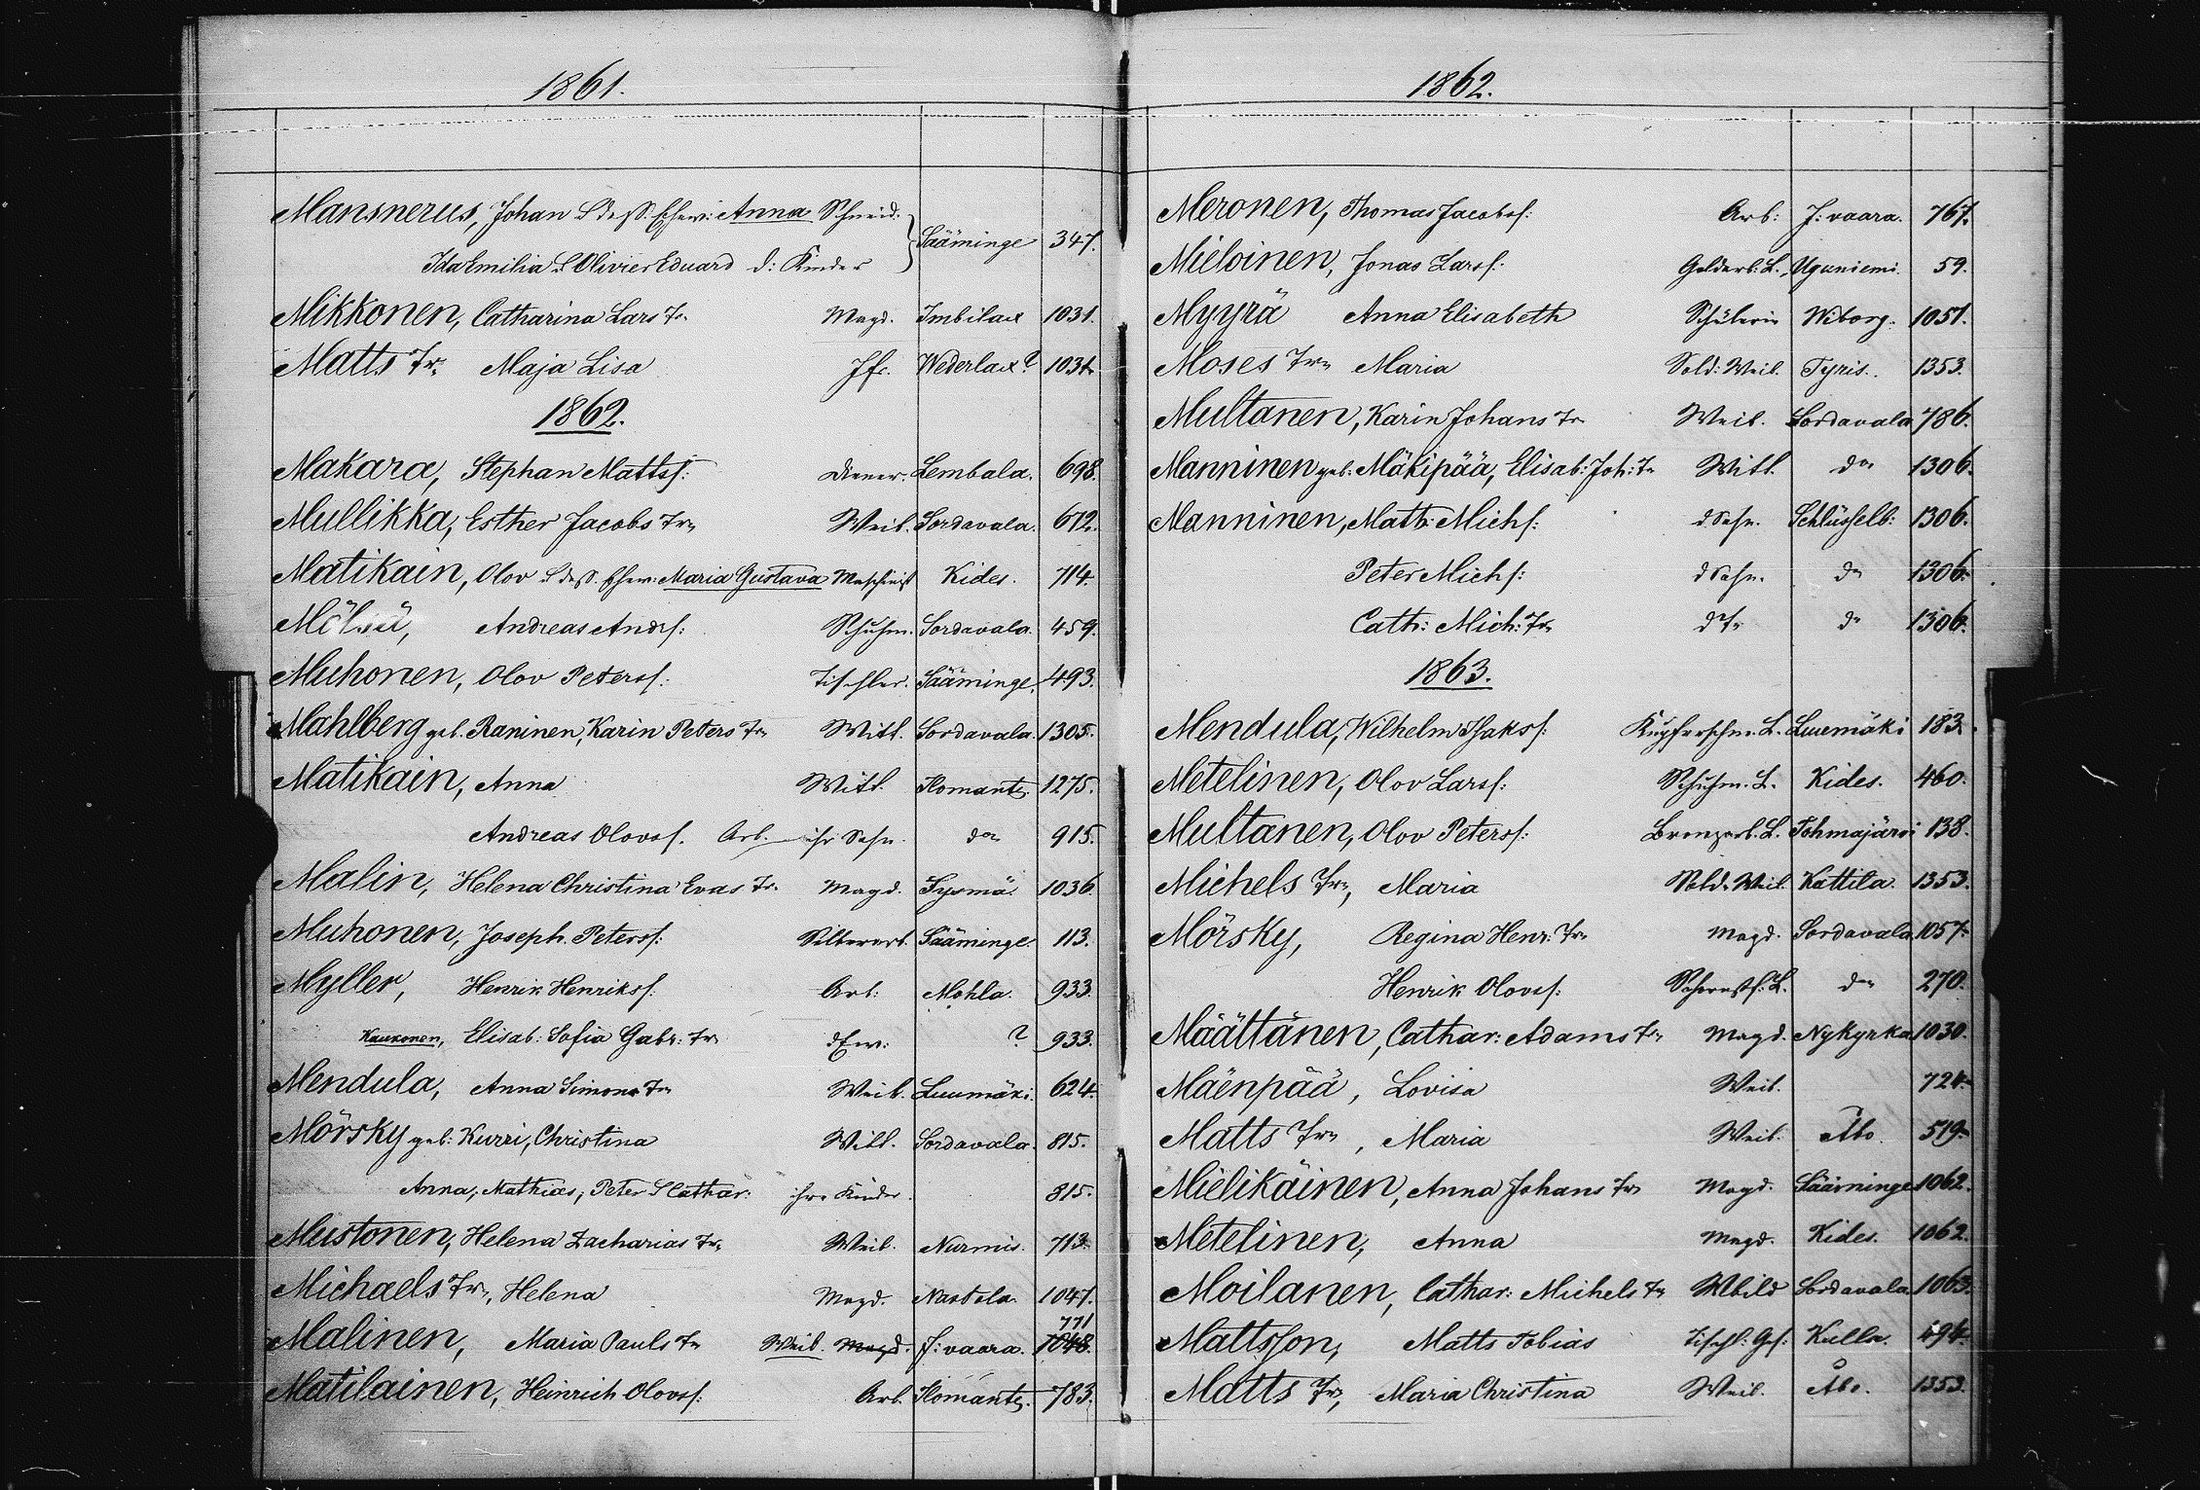 1861.
Mansnerus, Johan & dess. Ehew: Anna Schneid.
Ida Emilia & Olivier Eduard d: Kinder Sääminge 347.
Mikkonen, Catharina Lars Tr. Magd. Imbilax 1031.
Matts Tr. Maja Lisa Jfr. Wederlax? 1031.
1862.
Makara, Stephan Mattsf: Diener. Lembala. 698.
Mullikka, Esther Jacobs Tr. Weib. Sordavala. 612.
Matikain, Olov & dess. Ehew: Maria Gustava Maschinist Kides. 714.
Andreas Andrf: Schuhm. Sordavala. 459.
Muhonen, Olov Petersf: Tischler. Sääminge. 493.
Mahlberg geb. Raninen, Karin Peters Tr. Witt. Sordavala. 1305.
Matikain, Anna Witt. Ilomants. 1275.
Andreas Olovsf. Arb. ihr Sohn. do 915.
Malin, Helena Christina Evas Tr. Magd. Sysmä. 1036
Muhonen, Joseph Petersf: Silberarb. Sääminge. 113.
Myller, Henrik Henriksf. Arb: Mohla. 933.
Kaukonen, Elisab: Sofia Gabr: Tr. d Ew: ? 933.
Mendula, Anna Simons Tr. Weib. Luumäki. 624.
Mörsky geb: Kurri, Christina Witt. Sordavala. 815.
Anna, Mathias, Peter & Cathar: ihre Kinder. 815.
Mustonen, Helena Zacharias Tr. Weib. Nurmis. 713.
Michaels Tr., Helena Magd. Nastola. 1047.
771
Malinen, Maria Pauls Tr. Weib. Magd. J: vaara. 1048.
Matilainen, Heinrich Olovsf. Arb. Ilomants. 783.
1862.
Meronen, Thomas Jacobsf: Arb: J: vaara. 767.
Mieloinen, Jonas Larsf: Goldarb. L. Uguniemi. 59.
Myyrä Anna Elisabeth Schülerin Wiborg. 1051.
Moses Tr. Maria Sold: Weib. Tyris. 1353.
Multanen, Karin Johans Tr. Weib. Sordavala 786.
Manninen geb: Mäkipää, Elisab: Joh: Tr. Witt. do 1306.
Manninen, Matts Michf: d Sohn. Schlüsselb: 1306.
Peter Michf: d Sohn. do 1306.
Cath: Mich: Tr. d Tr. do 1306.
1863.
Mendula, Wilhelm Isaksf: Kupferschm. L. Luumäki 183.
Metelinen, Olov Larsf: Schuhm. L. Kides. 460.
Multanen, Olov Petersf: Bronzarb. L. Tohmajärvi 138.
Michels Tr., Maria Sold. Weib. Kattila. 1353.
Mörsky, Regina Henr: Tr. Magd. Sordavala 1057.
Henrik Olovsf: Schornstf: L. do 270.
Määttänen, Cathar: Adams Tr. Magd. Nykyrka 1030.
Mäenpää, Lovisa Weib. 724.
Matts Tr., Maria Weib. Åbo. 519.
Mielikäinen, Anna Johans Tr. Magd. Sääminge 1062.
Metelinen, Anna Magd. Kides. 1062.
Moilanen, Cathar: Michels Tr. Wbild Sordavala 1063.
Mattsson, Matts Tobias Tischl: Ges: Kulla. 494.
Matts Tr., Maria Christina Weib. Åbo. 1353.